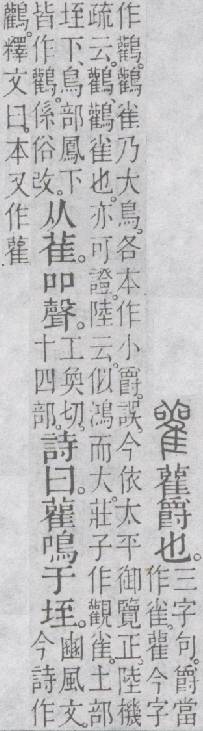 雚 雚爵也。三字句。爵當作雀。雚今字
作鸛。鸛雀乃大鳥。各本作小爵。誤。今依太平御覽正。陸機
疏云。鸛、鸛雀也。亦可證。陸云。似鴻而大。莊子作觀雀。土部
垤下、鳥部鳳下皆作鸛。係俗改。从萑。吅聲。工奐切。十四部。詩曰。雚鳴于垤。豳風文。今詩作
鸛。釋文曰。本又作雚